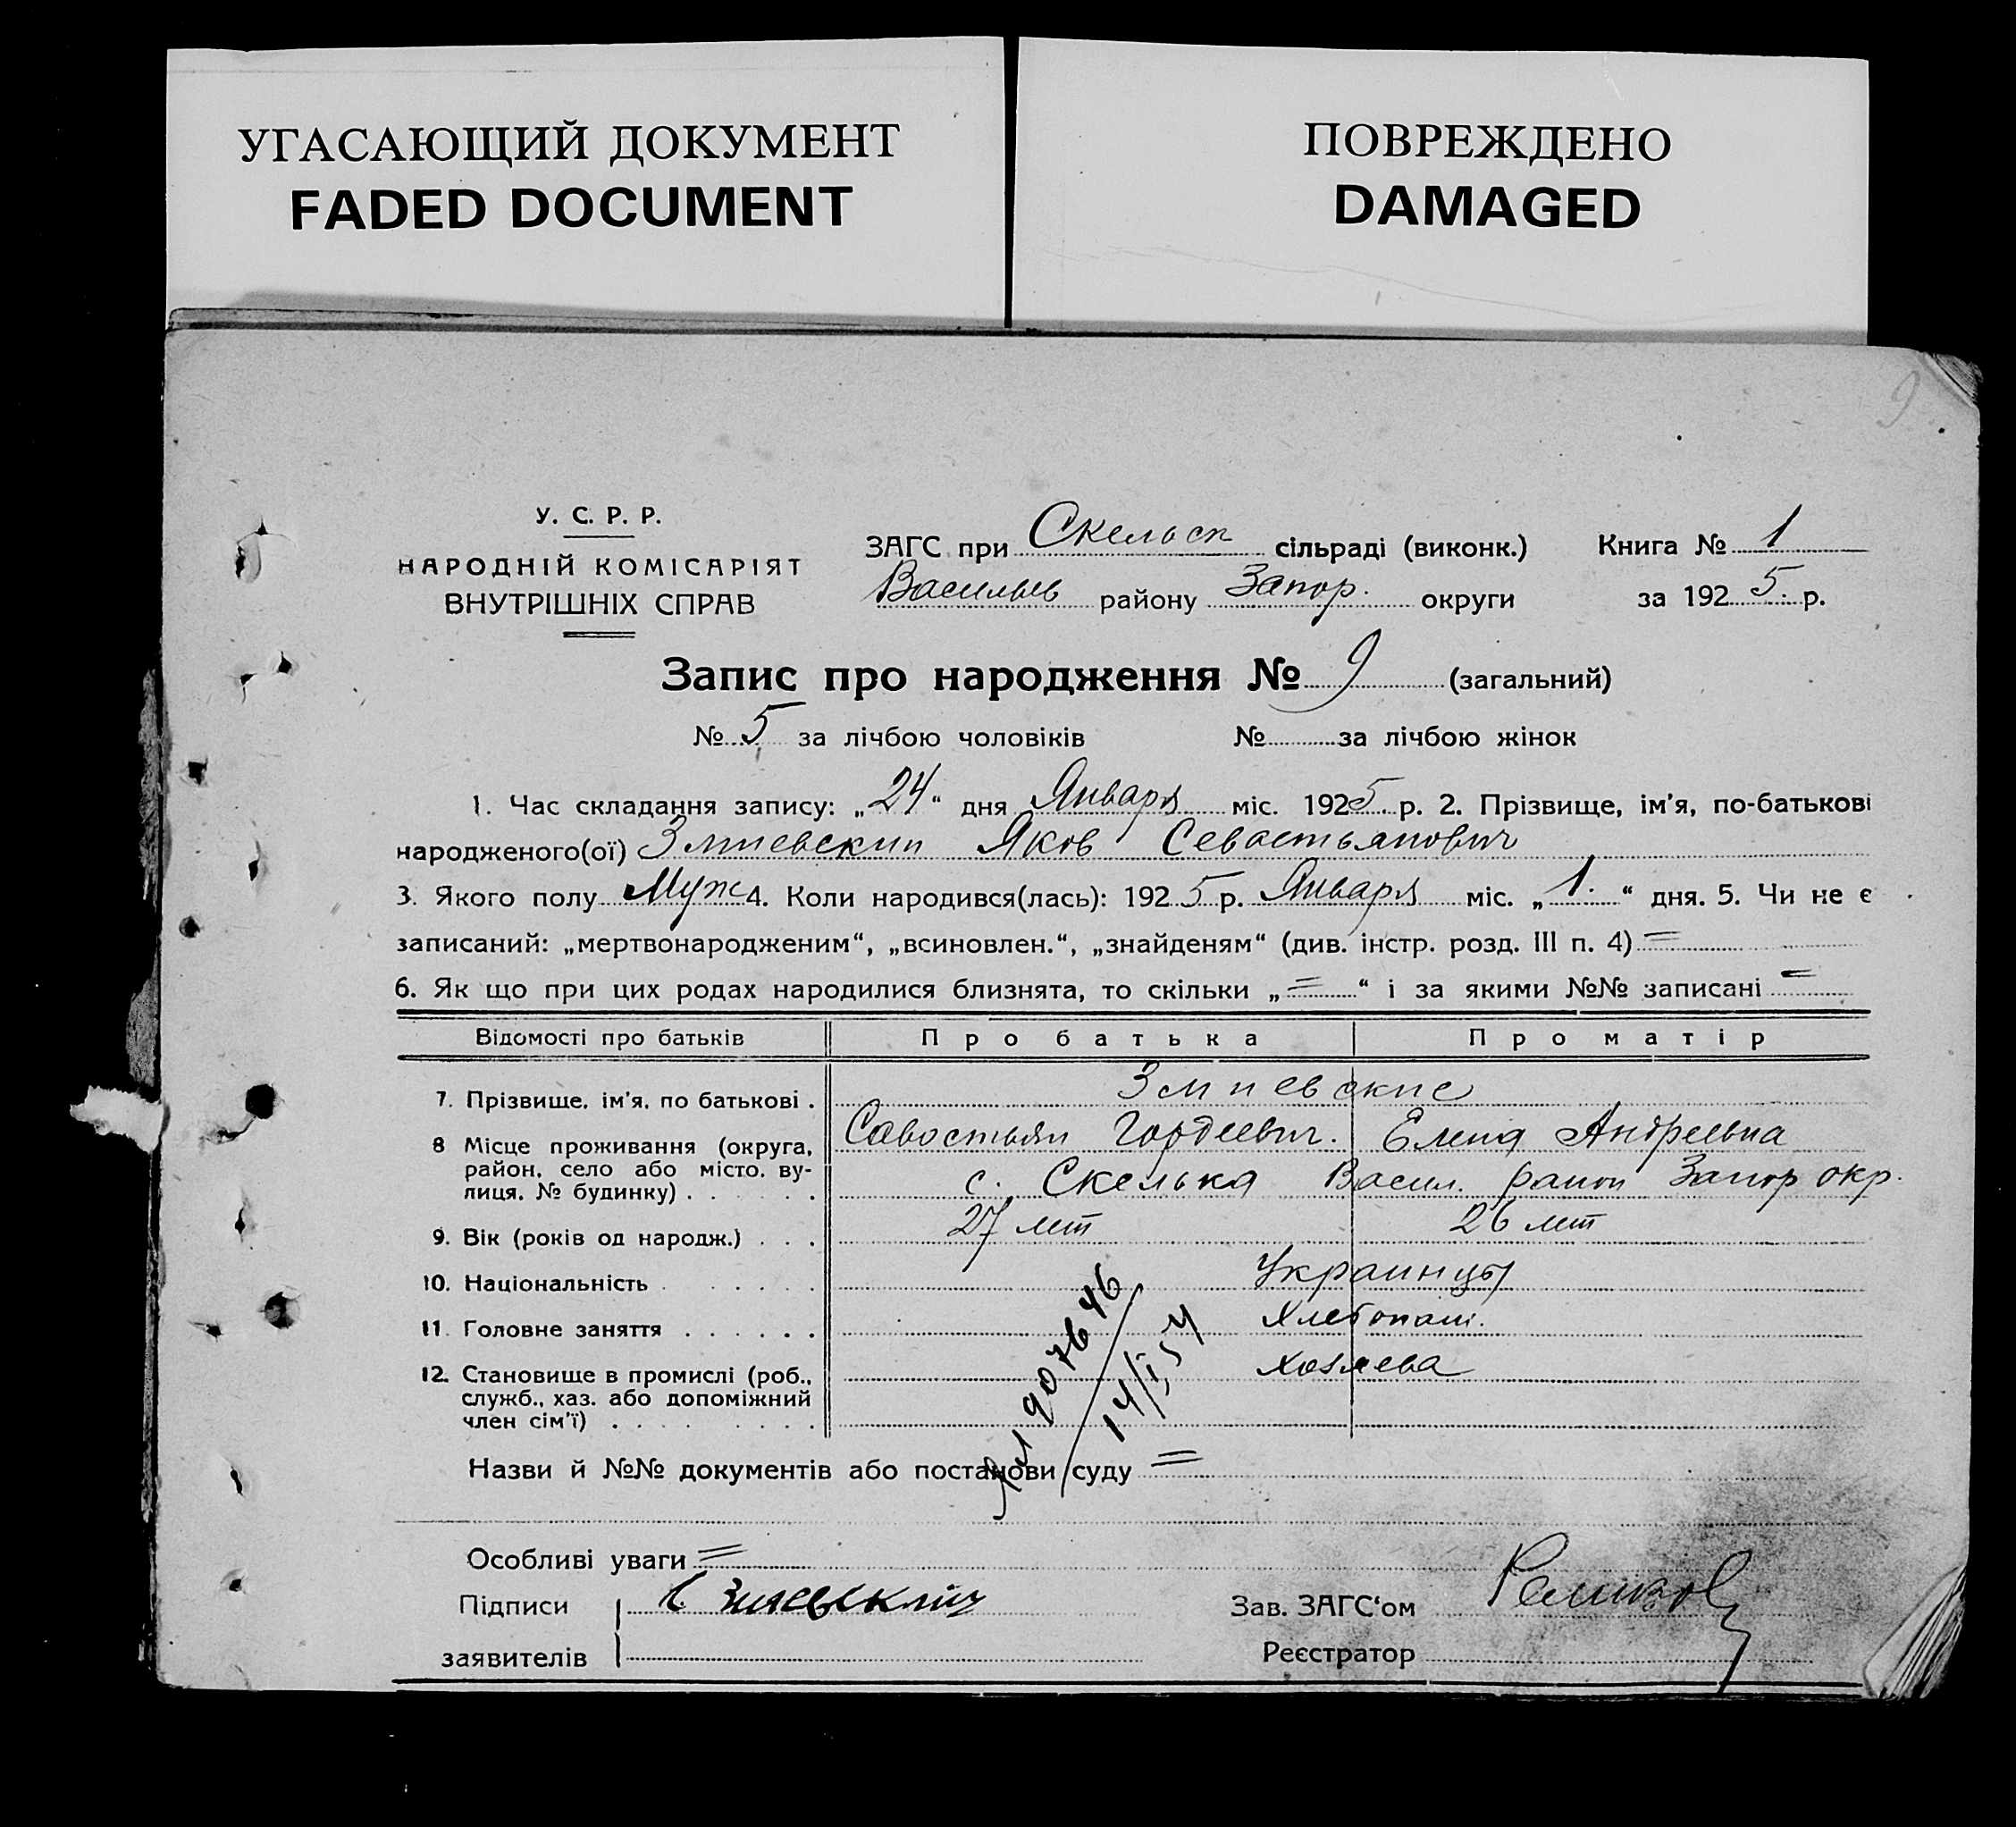 УГАСАЮЩИЙ ДОКУМЕНТ
FADED DOCUMENT
ПОВРЕЖДЕНО
DAMAGED
9
У. С. Р. Р.
НАРОДНІЙ КОМІСАРІЯТ
ВНУТРІШНІХ СПРАВ
ЗАГС при Скельск сільраді (виконк.) Книга № 1
Васильев району Запор. округи за 1925 р.
Запис про народження № 9 (загальний)
№ 5 за лічбою чоловіків № за лічбою жінок
1. Час складання запису: „24“ дня Января міс. 1925 р. 2. Прізвище, ім'я, по-батькові
народженого(ої) Змиевский Яков Севастьянович
3. Якого полу Муж 4. Коли народився(лась): 1925 р. Января міс. „1.“ дня. 5. Чи не є
записаний: „мертвонародженим“, „всиновлен.“, „знайденям“ (див. інстр. розд. III п. 4) =
6. Як що при цих родах народилися близнята, то скільки „=“ і за якими №№ записані =
Відомості про батьків Про батька Про матір
7. Прізвище, ім'я, по батькові . Змиевские
Савостьян Гордеевич. Елена Андреевна
8 Місце проживання (округа,
район, село або місто, ву-
лиця, № будинку) . . . . с. Скелька Васил. район Запор окр.
9. Вік (років од народж.) . . . 27 лет 26 лет
10. Національність . . . . . Украинцы
11. Головне заняття . . . . . . Хлебопаш.
12. Становище в промислі (роб.,
служб., хаз. або допоміжний
член сім'ї) . . . . . . . Хозяева
907646
14/I 54
Назви й №№ документів або постанови суду =
Особливі уваги =
Підписи
заявителів
Зав. ЗАГС'ом
Реєстратор